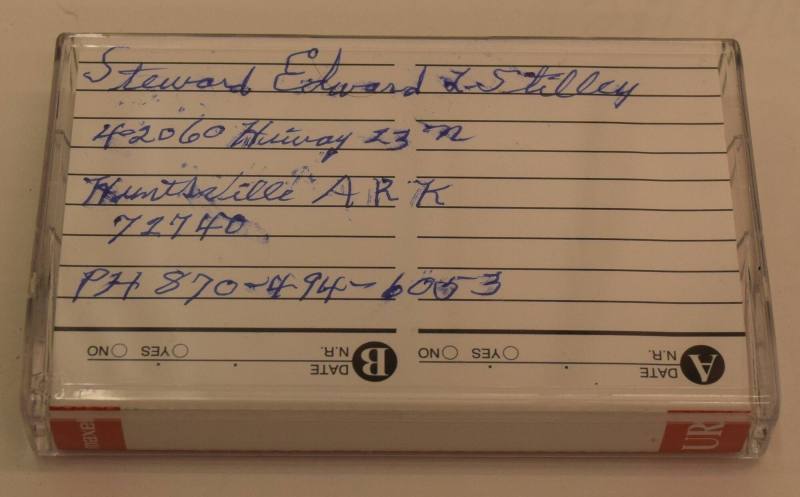 Steward Edward L Stilley
42060 Hiway 23 N
Huntsville ARK
72740
PH 870-494-6053
A DATE N.R. YES NO
B DATE N.R. YES NO
maxell
UR